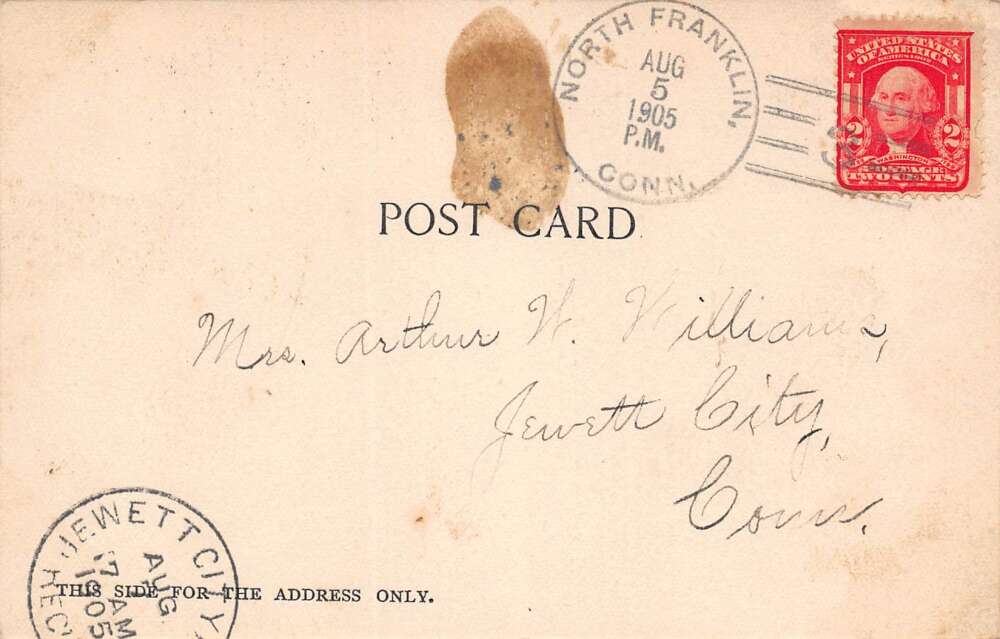 NORTH FRANKLIN,
CONN.
AUG
5
1905
P.M.
UNITED STATES
OF AMERICA
SERIES 1902
2 2
WASHINGTON
TWO CENTS
POST CARD
Mrs. Arthur W. Williams,
Jewett City,
Conn.
JEWETT CITY
AUG
7 AM
1905
REC'
THIS SIDE FOR THE ADDRESS ONLY.